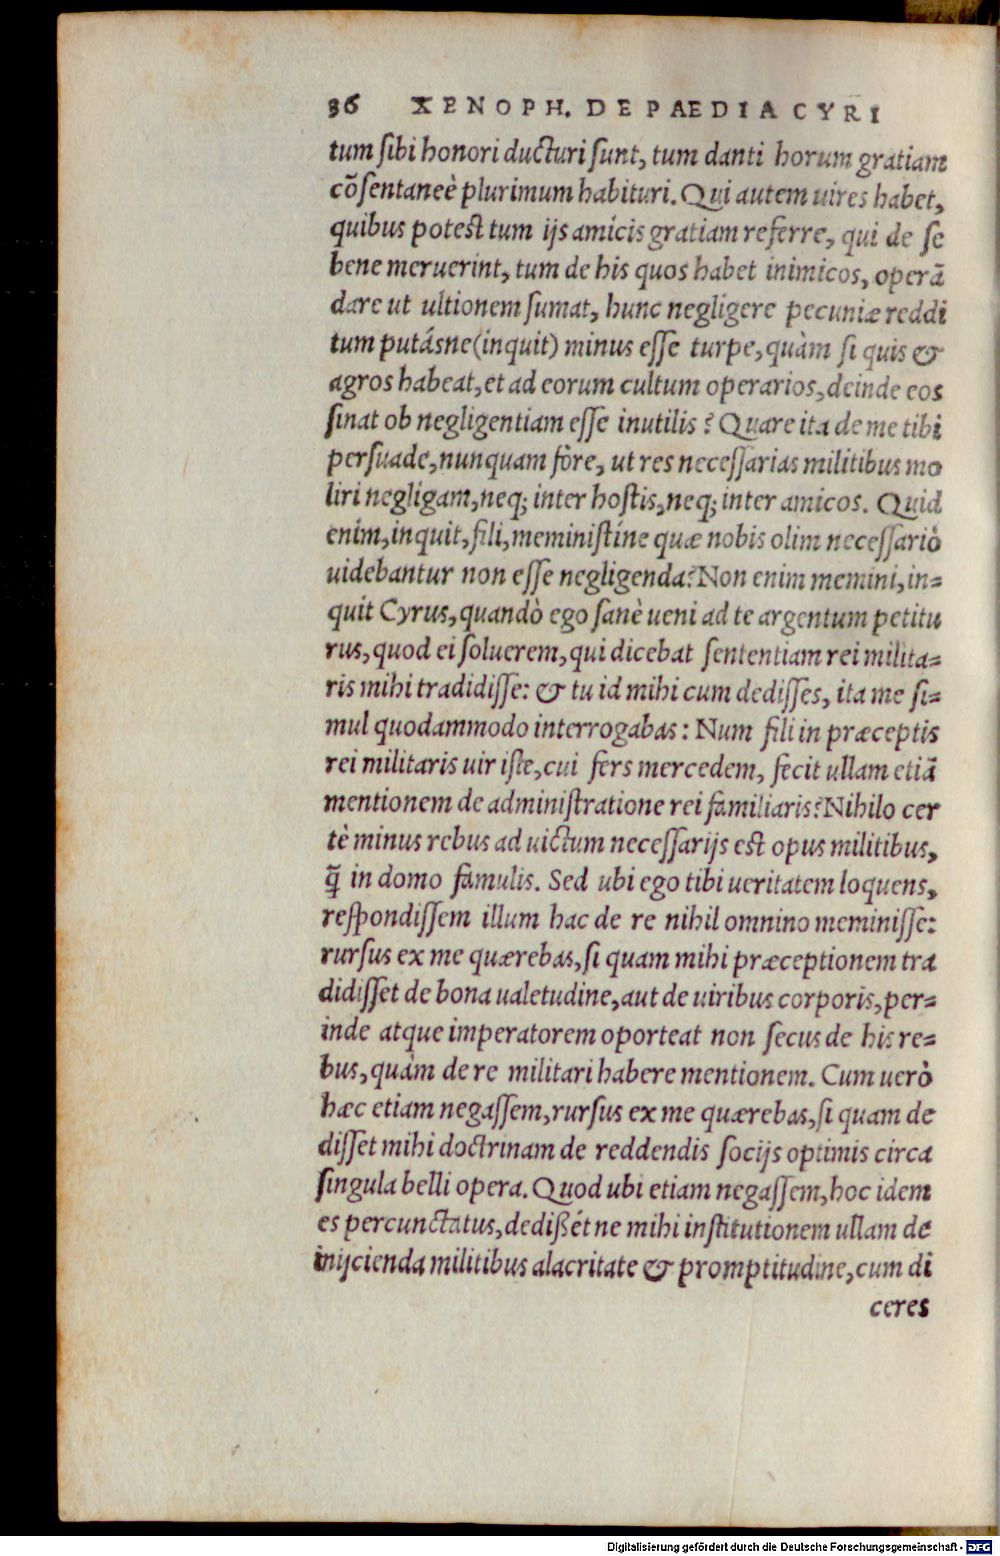 36 XENOPH. DE PAEDIA CYRI
tum sibi honori ducturi sunt, tum danti horum gratiam
cõsentaneè plurimum habituri. Qui autem uires habet,
quibus potest tum ijs amicis gratiam referre, qui de se
bene meruerint, tum de his quos habet inimicos, operã
dare ut ultionem sumat, hunc negligere pecuniæ reddi
tum putásne (inquit) minus esse turpe, quàm si quis &
agros habeat, et ad eorum cultum operarios, deinde eos
sinat ob negligentiam esse inutilis? Quare ita de me tibi
persuade, nunquam fòre, ut res necessarias militibus mo
liri negligam, neq; inter hostis, neq; inter amicos. Quid
enim, inquit, fili, meministíne quæ nobis olim necessariò
uidebantur non esse negligenda? Non enim memini, in=
quit Cyrus, quandò ego sanè ueni ad te argentum petitu
rus, quod ei soluerem, qui dicebat sententiam rei milita=
ris mihi tradidisse: & tu id mihi cum dedisses, ita me si=
mul quodammodo interrogabas: Num fili in præceptis
rei militaris uir iste, cui fers mercedem, fecit ullam etiã
mentionem de administratione rei familiaris? Nihilo cer
tè minus rebus ad uictum necessarijs est opus militibus,
q̃ in domo famulis. Sed ubi ego tibi ueritatem loquens,
respondissem illum hac de re nihil omnino meminisse:
rursus ex me quærebas, si quam mihi præceptionem tra
didisset de bona ualetudine, aut de uiribus corporis, per=
inde atque imperatorem oporteat non secus de his re=
bus, quàm de re militari habere mentionem. Cum uerò
hæc etiam negassem, rursus ex me quærebas, si quam de
disset mihi doctrinam de reddendis socijs optimis circa
singula belli opera. Quod ubi etiam negassem, hoc idem
es percunctatus, dedißét ne mihi institutionem ullam de
inijcienda militibus alacritate & promptitudine, cum di
ceres
Digitalisierung gefördert durch die Deutsche Forschungsgemeinschaft - DFG